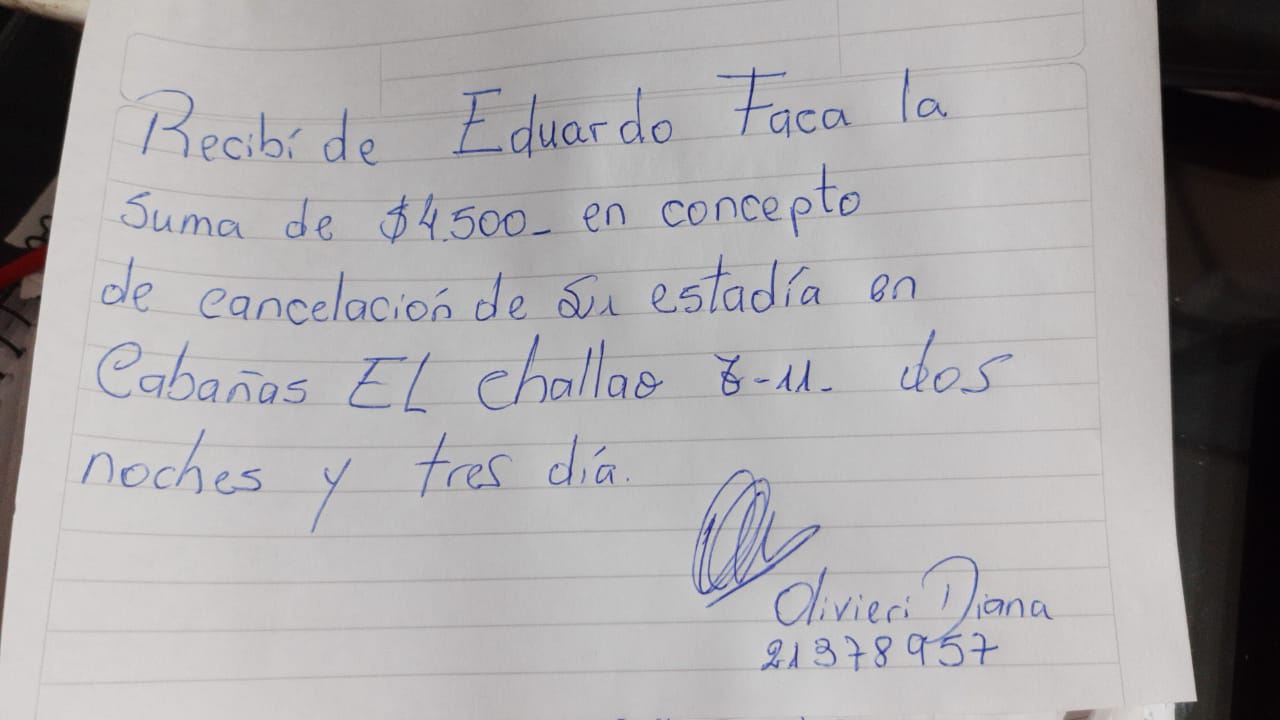 Recibí de Eduardo Faca la
suma de $4.500_ en concepto
de cancelación de su estadía en
Cabañas EL challao -11- dos
noches y tres día.
Olivieri Diana
21378957